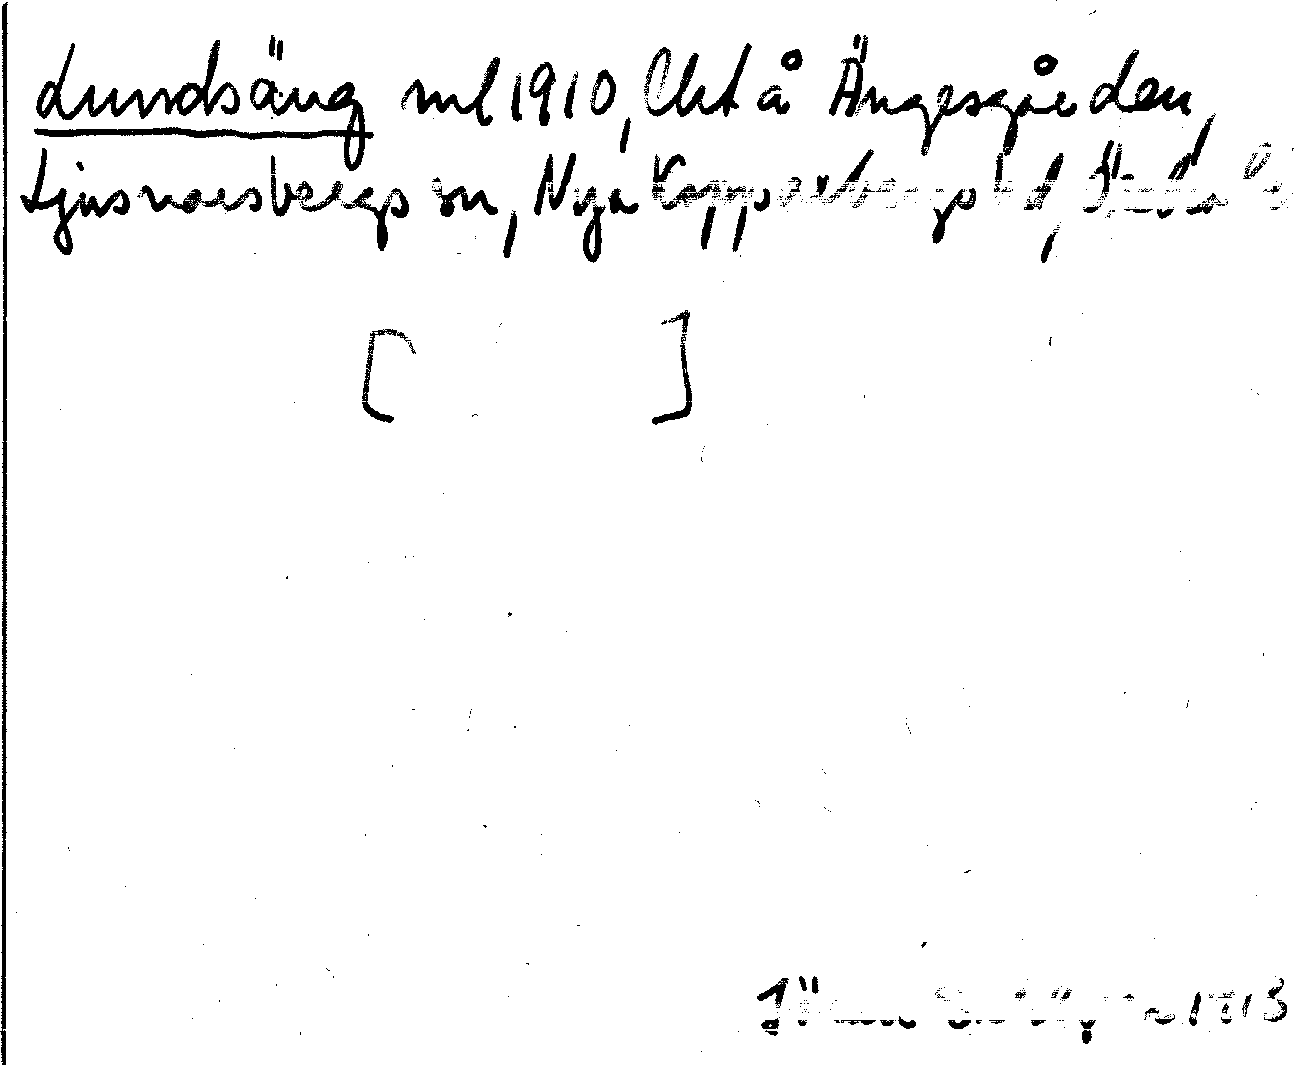 Lundsäng ml 1910, Cht å Ängsgården,
Ljusnarsbergs sn, Nya Kopparbergs hd,
[ ]